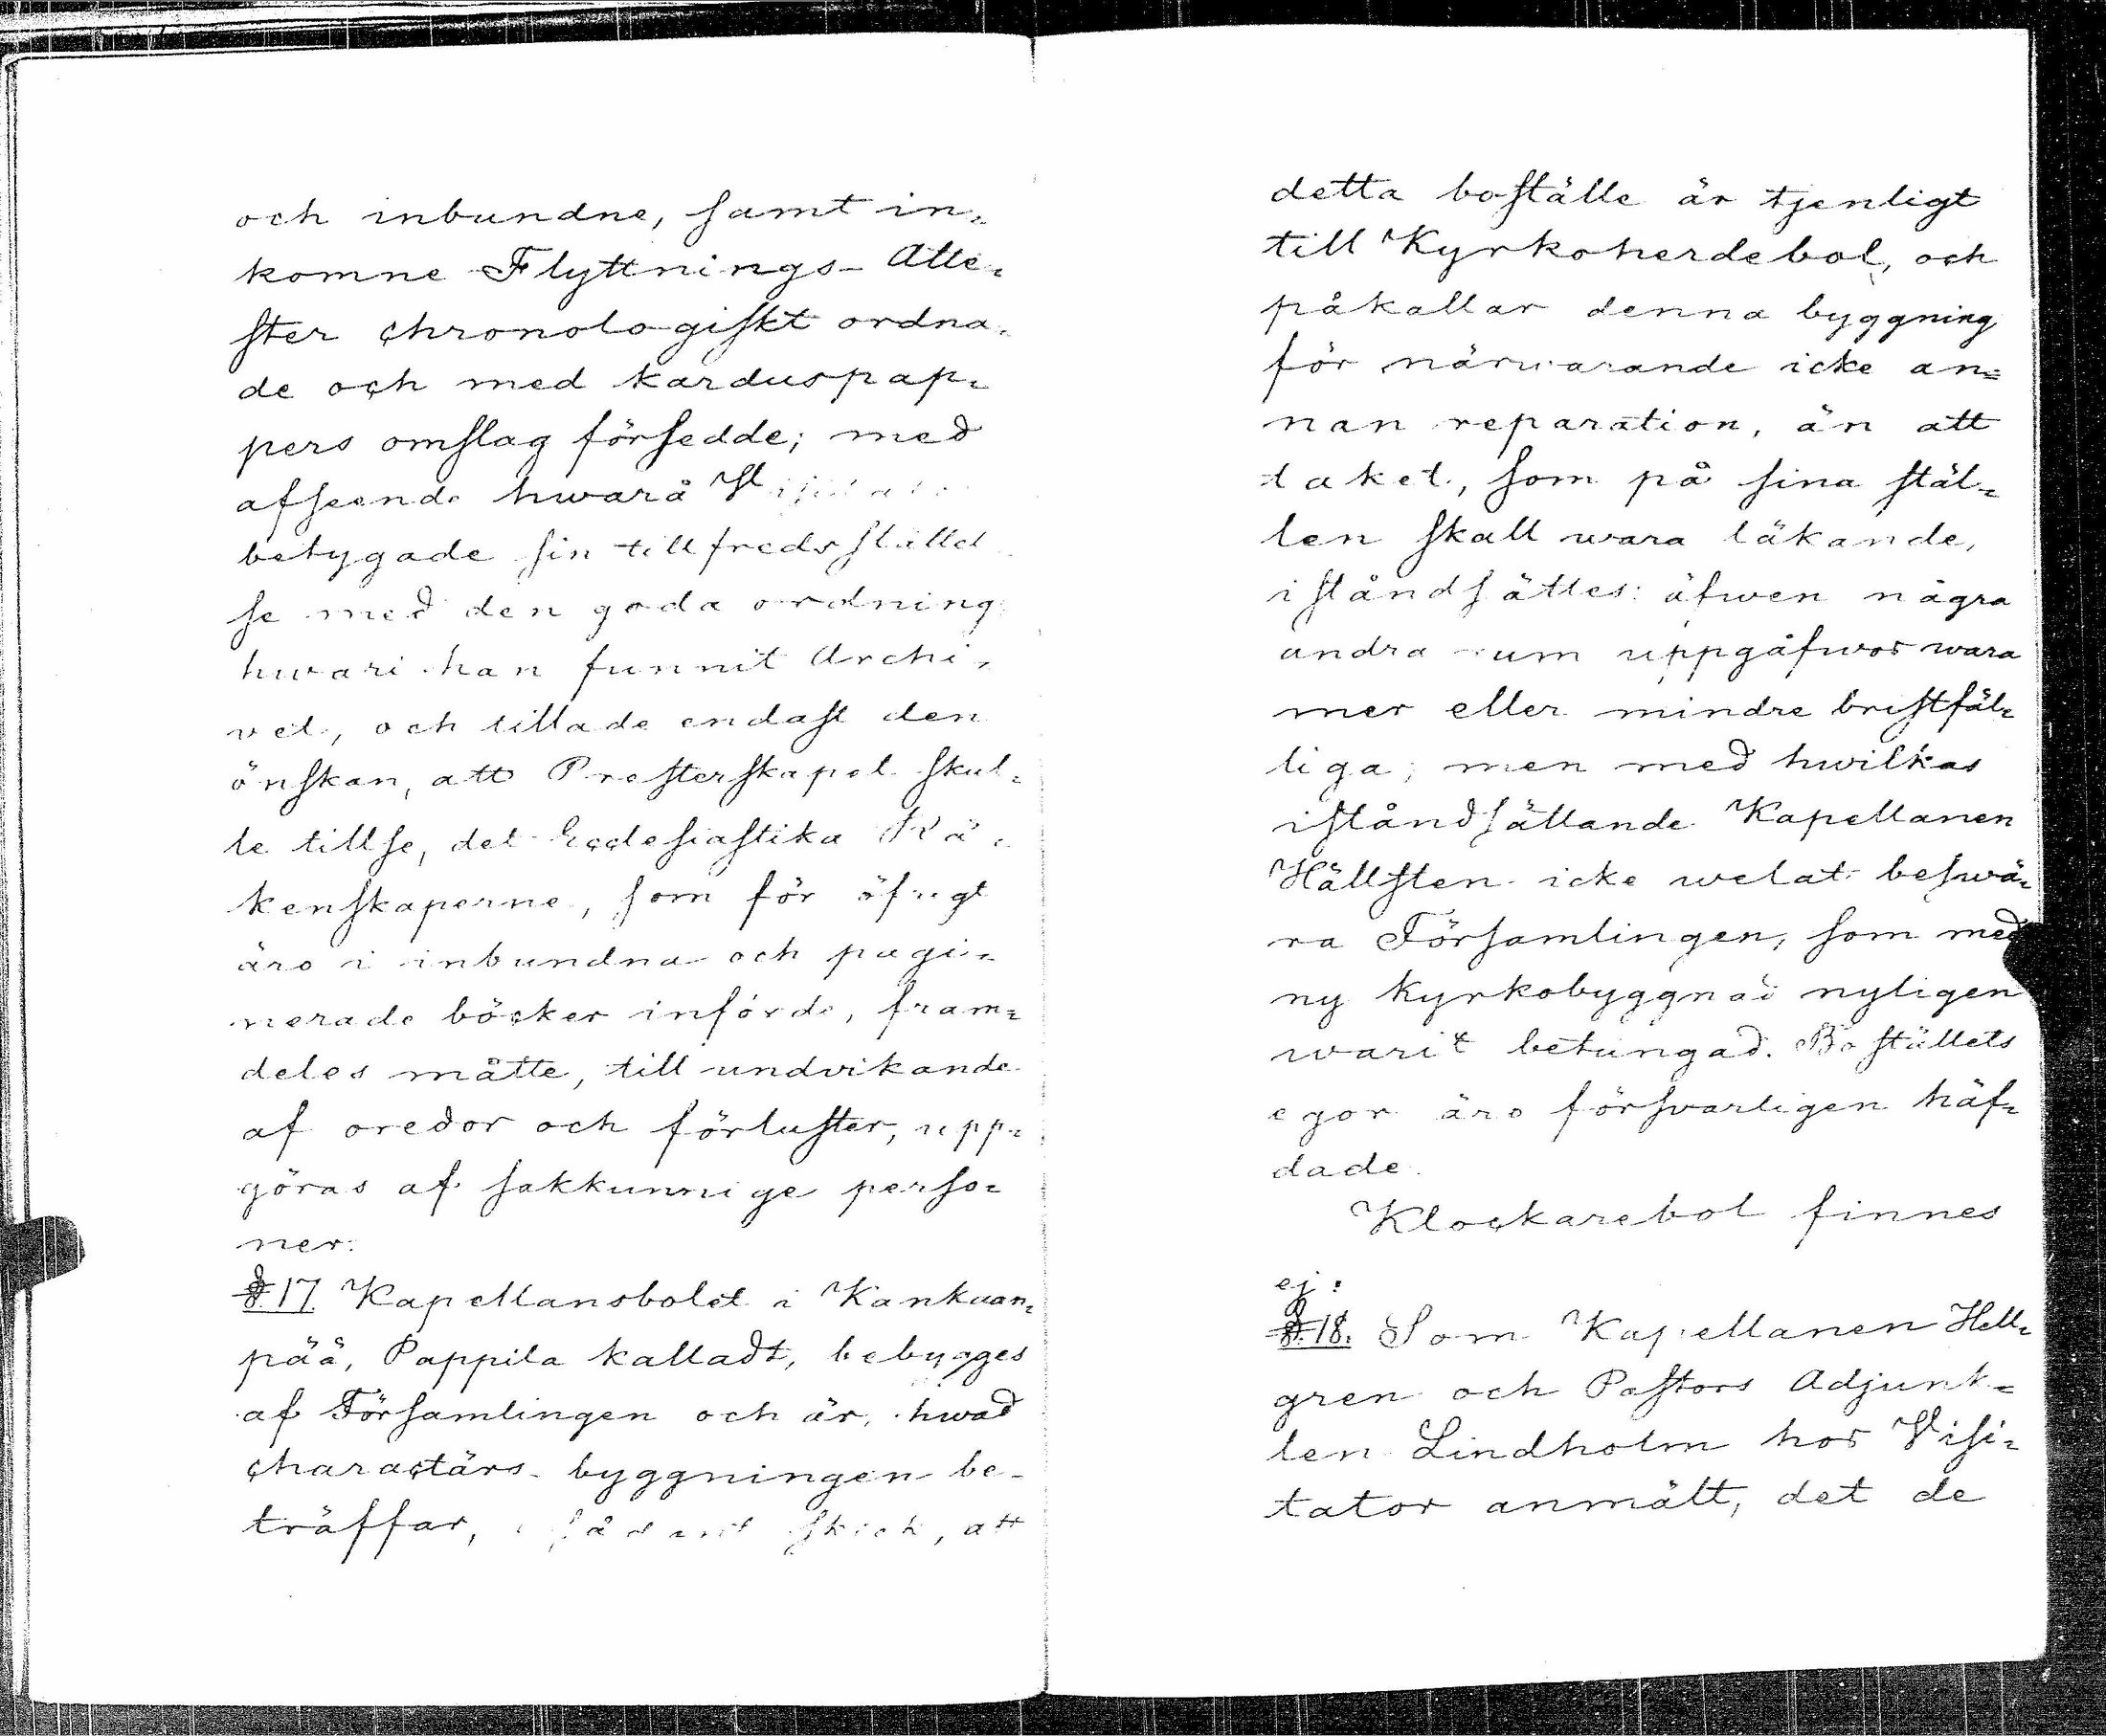 och inbundne, samt in=
komne Flyttnings-Atte=
ster chronologiskt ordna=
de och med karduspap=
pers omslag försedde; med
afseende hwarå Visitator
betygade sin tillfredsställel
se med den goda ordning
hwari han funnit Archi=
vet, och tillade endast den
önskan, att Presterskapet skul=
le tillse, det Ecclesiastika Rä=
kenskaperne, som för öfrigt
äro i inbundna och pagi=
nerade böcker införde, fram=
deles måtte, till undvikande
af oredor och förluster, upp=
göras af sakkunnige perso=
ner.
§.17. Kapellansbolet i Kankaan=
pää, Pappila kalladt, bebygges
af Församlingen och är, hwad
charactärs-byggningen be-
träffar, i sådant skick, att
detta boställe är tjenligt
till Kyrkoherdebol, och
påkallar denna byggning
för närwarande icke an=
nan reparation, än att
taket, som på sina stäl=
len skall wara läkande,
iståndsättes: äfwen några
andra rum uppgåfwos wara
mer eller mindre bristfäl=
liga; men med hwilkas
iståndsättande Kapellanen
Hällsten icke welat beswä=
ra Församlingen, som med
ny kyrkobyggnad nyligen
warit betungad. Boställets
egor äro försvarligen häf=
dade.
Klockarebol finnes
ej:
§.18. Som Kapellanen Hell=
gren och Pastors Adjunk=
ten Lindholm hos Visi=
tator anmält, det de